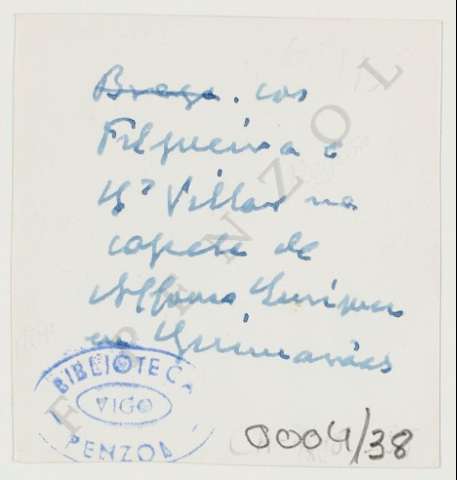 Braga. cos
Filgueira e
Mª Villar na
capela de
Alfonso Enriques
en Guimarães
BIBLIOTECA
VIGO
PENZOL
0004/38
F. PENZOL